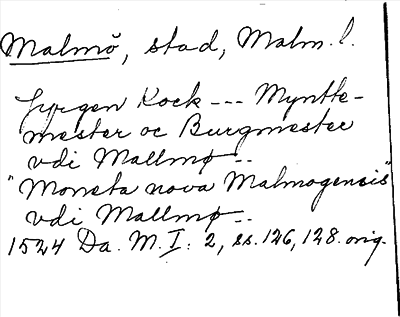 Malmö, stad, Malm. l.
Jyrgen Kock --- Myntte-
mester oc Burgmester
vdi Mallmø --
"Moneta nova Malmogensis"
vdi Mallmø --
1524 Da. M. I: 2, ss. 126, 128. orig.